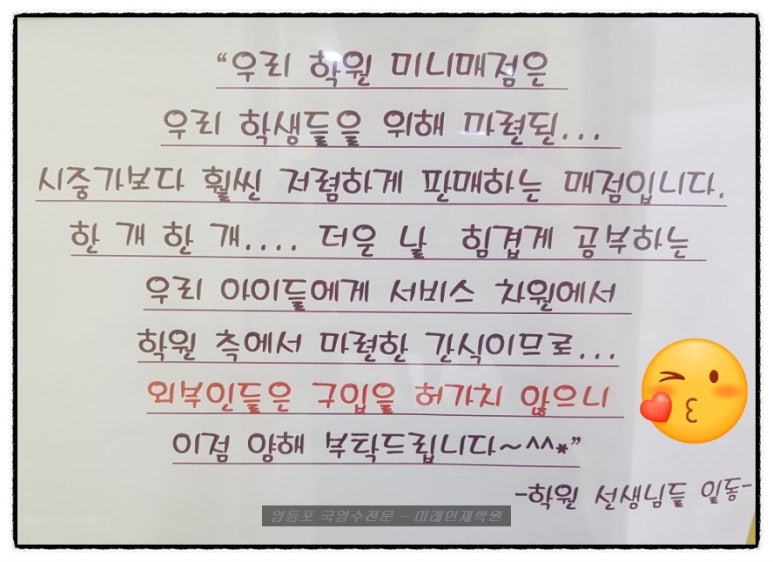 "우리 학원 미니매점은
우리 학생들을 위해 마련된...
시중가보다 훨씬 저렴하게 판매하는 매점입니다.
한 개 한 개.... 더운 날 힘겹게 공부하는
우리 아이들에게 서비스 차원에서
학원 측에서 마련한 간식이므로...
외부인들은 구입을 허가치 않으니
이점 양해 부탁드립니다~^^*"
-학원 선생님들 일동-
영등포 국영수전문 - 미래인재학원